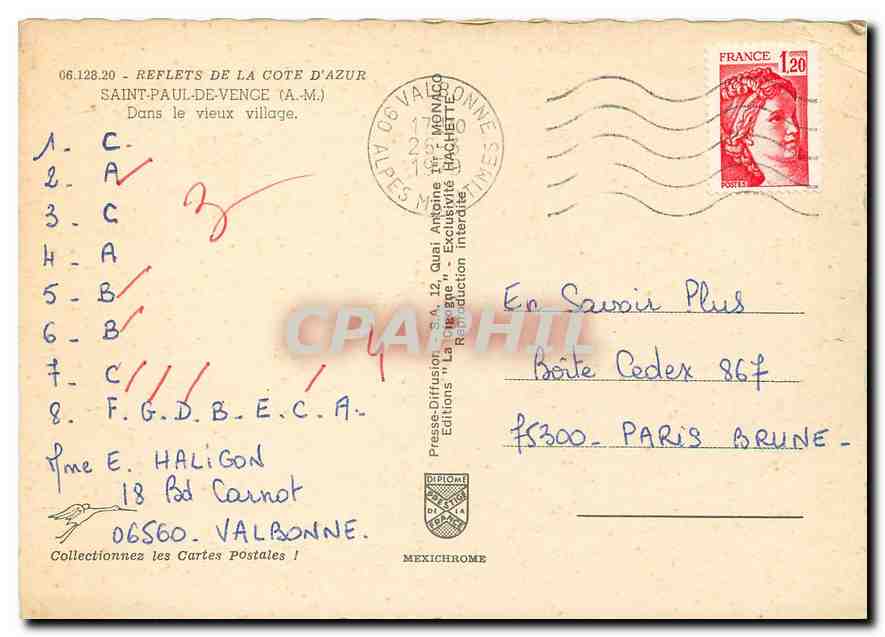 06.128.20 - REFLETS DE LA COTE D'AZUR
SAINT-PAUL-DE-VENCE (A.-M.)
Dans le vieux village.
1 - C -
2 - A
3 - C
4 - A
5 - B
6 - B
7 - C
8. F. G. D. B - E. C. A -
3
4
Mme E. HALIGON
18 Bd Carnot
06560 - VALBONNE.
Collectionnez les Cartes Postales !
06 VALBONNE
ALPES MARITIMES
Presse-Diffusion - S.A. 12, Quai Antoine 1er - MONACO
Editions "La Cigogne" - Exclusivité HACHETTE
Reproduction interdite
DIPLOME
PRESTIGE
DE LA
FRANCE
MEXICHROME
FRANCE 1,20
POSTES
En Savoir Plus
Boîte Cedex 867
75300 - PARIS BRUNE -
CPAPHIL